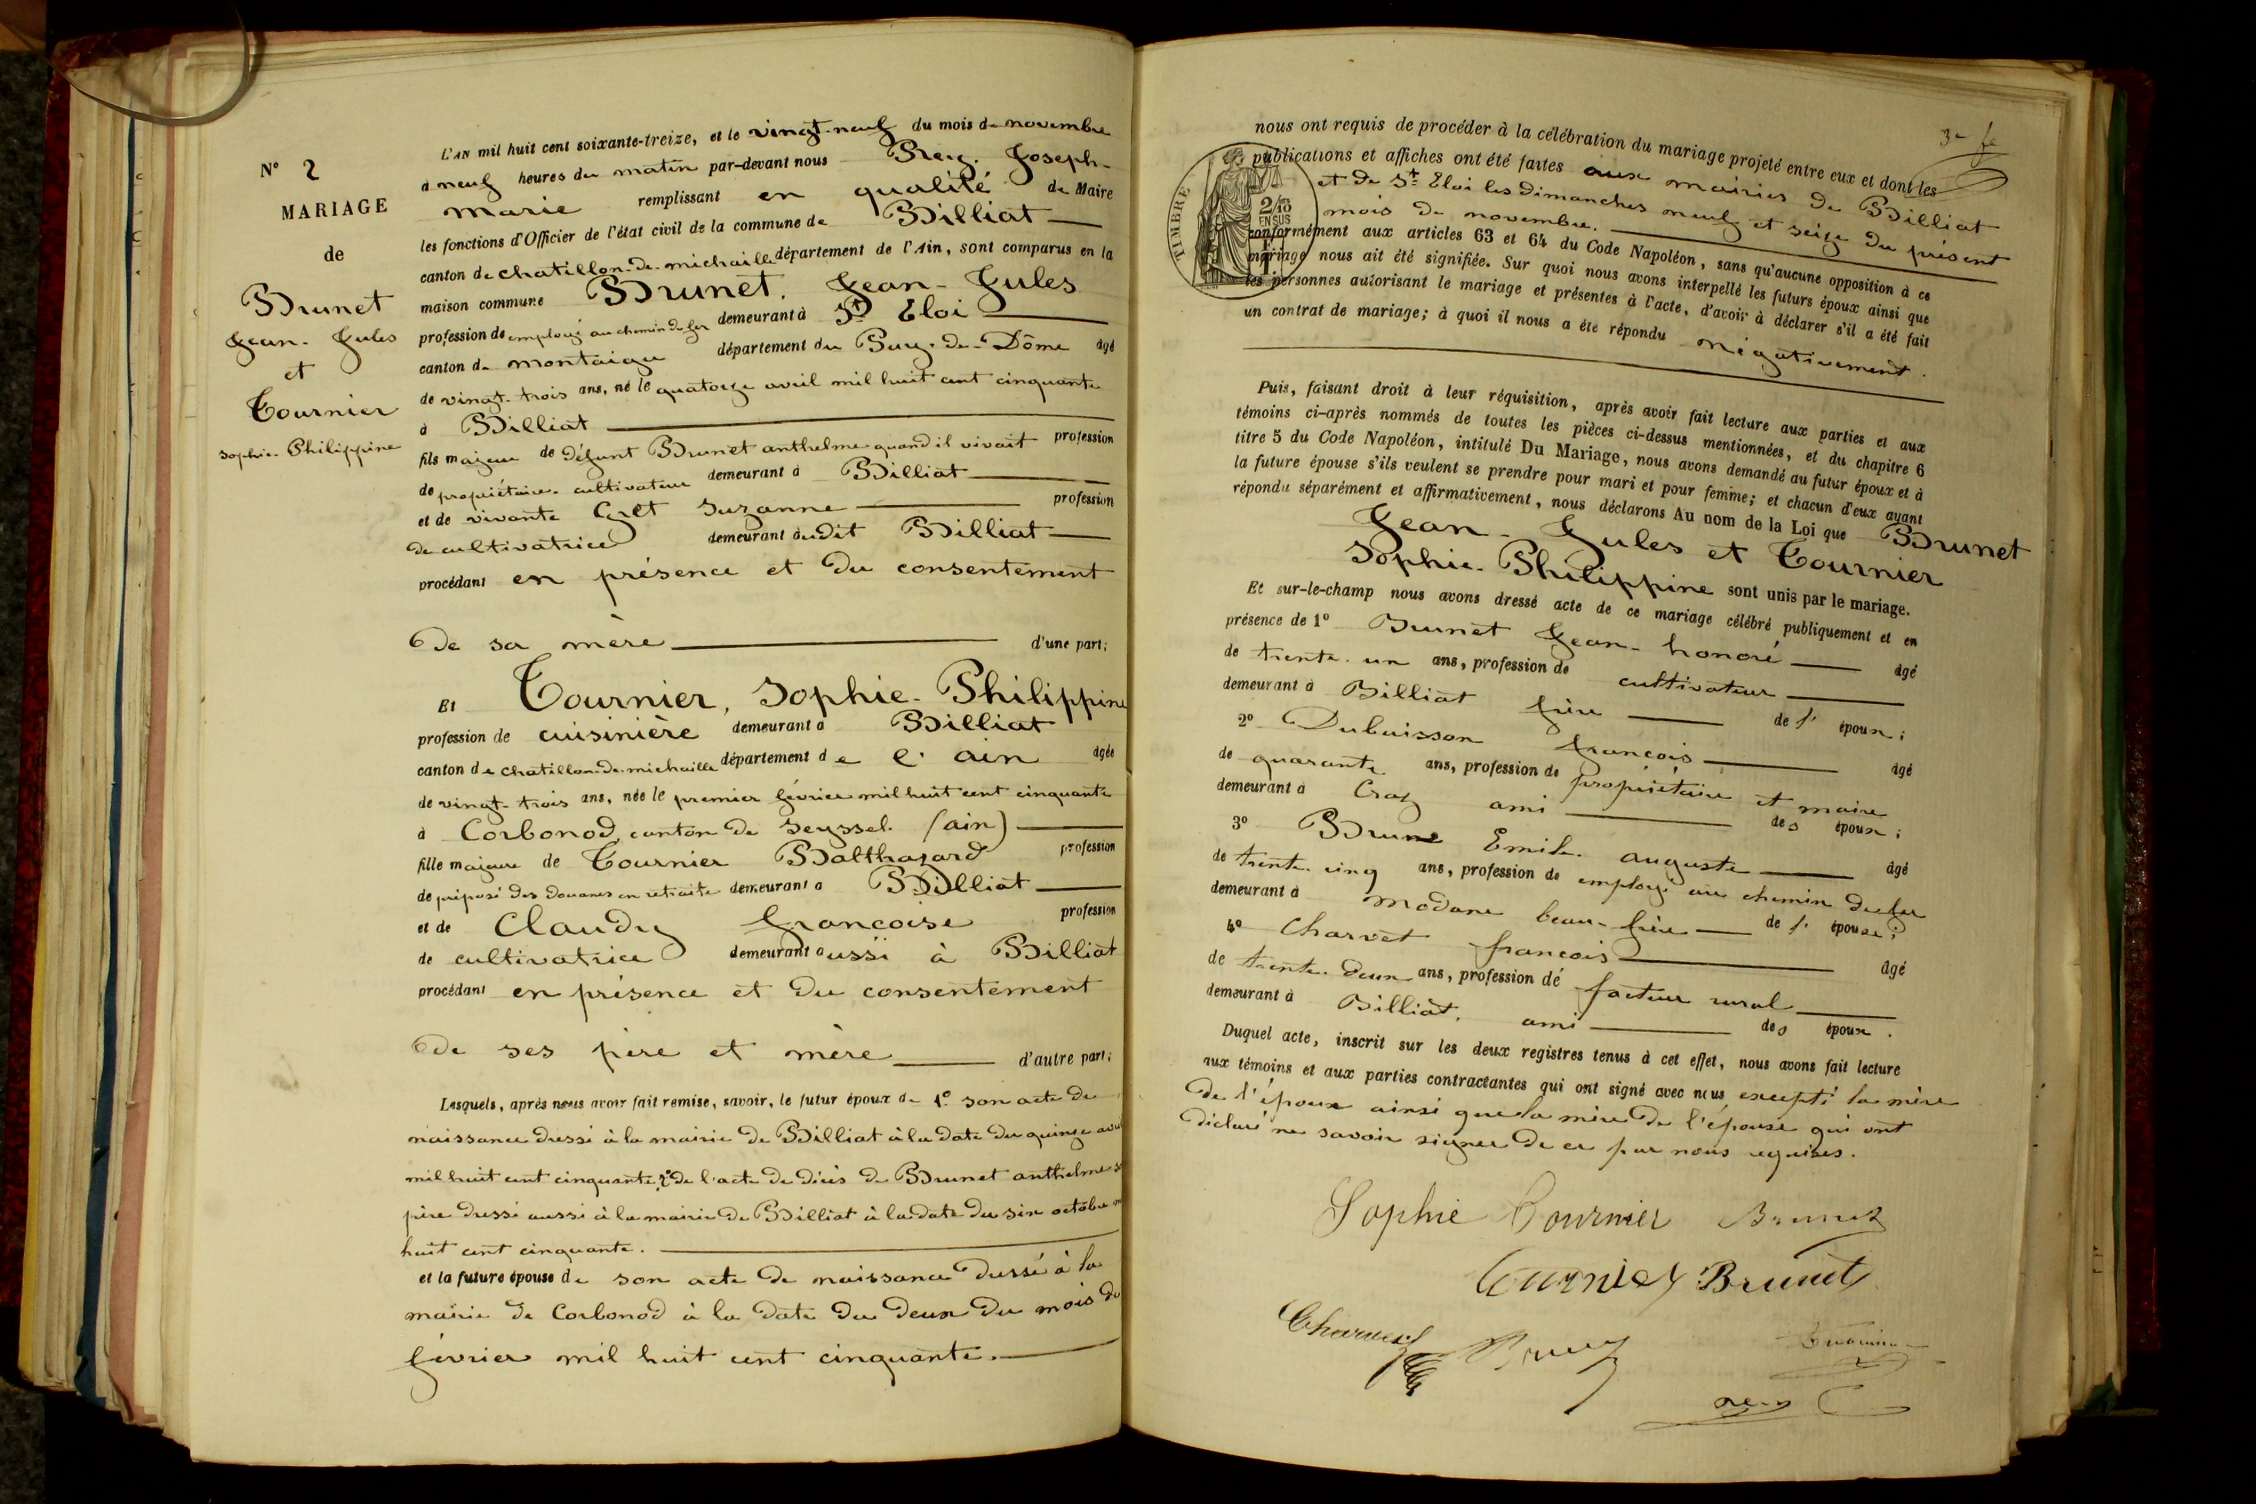 N° 2
MARIAGE
de
Brunet
Jean-Jules
et
Tournier
Sophie-Philippine
L'AN mil huit cent soixante-treize, et le vingt-neuf du mois de novembre
à neuf heures du matin par-devant nous Rey, Joseph-
Marie remplissant en qualité de Maire
les fonctions d'Officier de l'état civil de la commune de Billiat
canton de chatillon-de-michaille département de l'Ain, sont comparus en la
maison commune Brunet, Jean-Jules
profession de employé au chemin de fer demeurant à St Eloi
canton de montaigu département du Puy-de-Dôme âgé
de vingt-trois ans, né le quatorze avril mil huit cent cinquante
à Billiat
fils majeur de défunt Brunet anthelme quand il vivait profession
de propriétaire-cultivateur demeurant à Billiat
et de vivante Suzanne profession
de cultivatrice demeurant audit Billiat
procédant en présence et du consentement
de sa mère d'une part;
Et Tournier, Sophie-Philippine
profession de cuisinière demeurant à Billiat
canton de chatillon-de-michaille département de l'ain âgée
de vingt-trois ans, née le premier février mil huit cent cinquante
à Corbonod, canton de Seyssel (ain)
fille majeure de Tournier Balthazard profession
de préposé des douanes en retraite demeurant à Billiat
et de Claudy françoise profession
de cultivatrice demeurant aussi à Billiat
procédant en présence et du consentement
de ses père et mère d'autre part;
Lesquels, après nous avoir fait remise, savoir, le futur époux de 1° son acte de
naissance dressé à la mairie de Billiat à la date du quinze avril
mil huit cent cinquante; 2° de l'acte de décès de Brunet anthelme son
père dressé aussi à la mairie de Billiat à la date du six octobre mil
huit cent cinquante.
et la future épouse de son acte de naissance dressé à la
mairie de Corbonod à la date du deux du mois de
février mil huit cent cinquante.
3e f
TIMBRE
2/10
EN SUS
nous ont requis de procéder à la célébration du mariage projeté entre eux et dont les
publications et affiches ont été faites aux mairies de Billiat
et de St Eloi les dimanches neuf et seize du présent
mois de novembre.
conformément aux articles 63 et 64 du Code Napoléon, sans qu'aucune opposition à ce
mariage nous ait été signifiée. Sur quoi nous avons interpellé les futurs époux ainsi que
les personnes autorisant le mariage et présentes à l'acte, d'avoir à déclarer s'il a été fait
un contrat de mariage; à quoi il nous a été répondu négativement.
Puis, faisant droit à leur réquisition, après avoir fait lecture aux parties et aux
témoins ci-après nommés de toutes les pièces ci-dessus mentionnées, et du chapitre 6
titre 5 du Code Napoléon, intitulé Du Mariage, nous avons demandé au futur époux et à
la future épouse s'ils veulent se prendre pour mari et pour femme; et chacun d'eux ayant
répondu séparément et affirmativement, nous déclarons Au nom de la Loi que Brunet
Jean-Jules et Tournier
Sophie-Philippine sont unis par le mariage.
Et sur-le-champ nous avons dressé acte de ce mariage célébré publiquement et en
présence de 1° Brunet Jean-honoré âgé
de trente-un ans, profession de cultivateur
demeurant à Billiat frère de l' époux;
2° Dubuisson françois âgé
de quarante ans, profession de propriétaire et maire
demeurant à Craz ami des époux;
3° Brune Emile auguste âgé
de trente-cinq ans, profession de employé au chemin de fer
demeurant à modane beau-frère de l' épouse;
4° Charvet françois âgé
de trente-deux ans, profession de facteur rural
demeurant à Billiat, ami des époux.
Duquel acte, inscrit sur les deux registres tenus à cet effet, nous avons fait lecture
aux témoins et aux parties contractantes qui ont signé avec nous excepté la mère
de l'époux ainsi que la mère de l'épouse qui ont
déclaré ne savoir signer de ce par nous requises.
Sophie Tournier Brunet
Tournier Brunet
Charvet
Rey